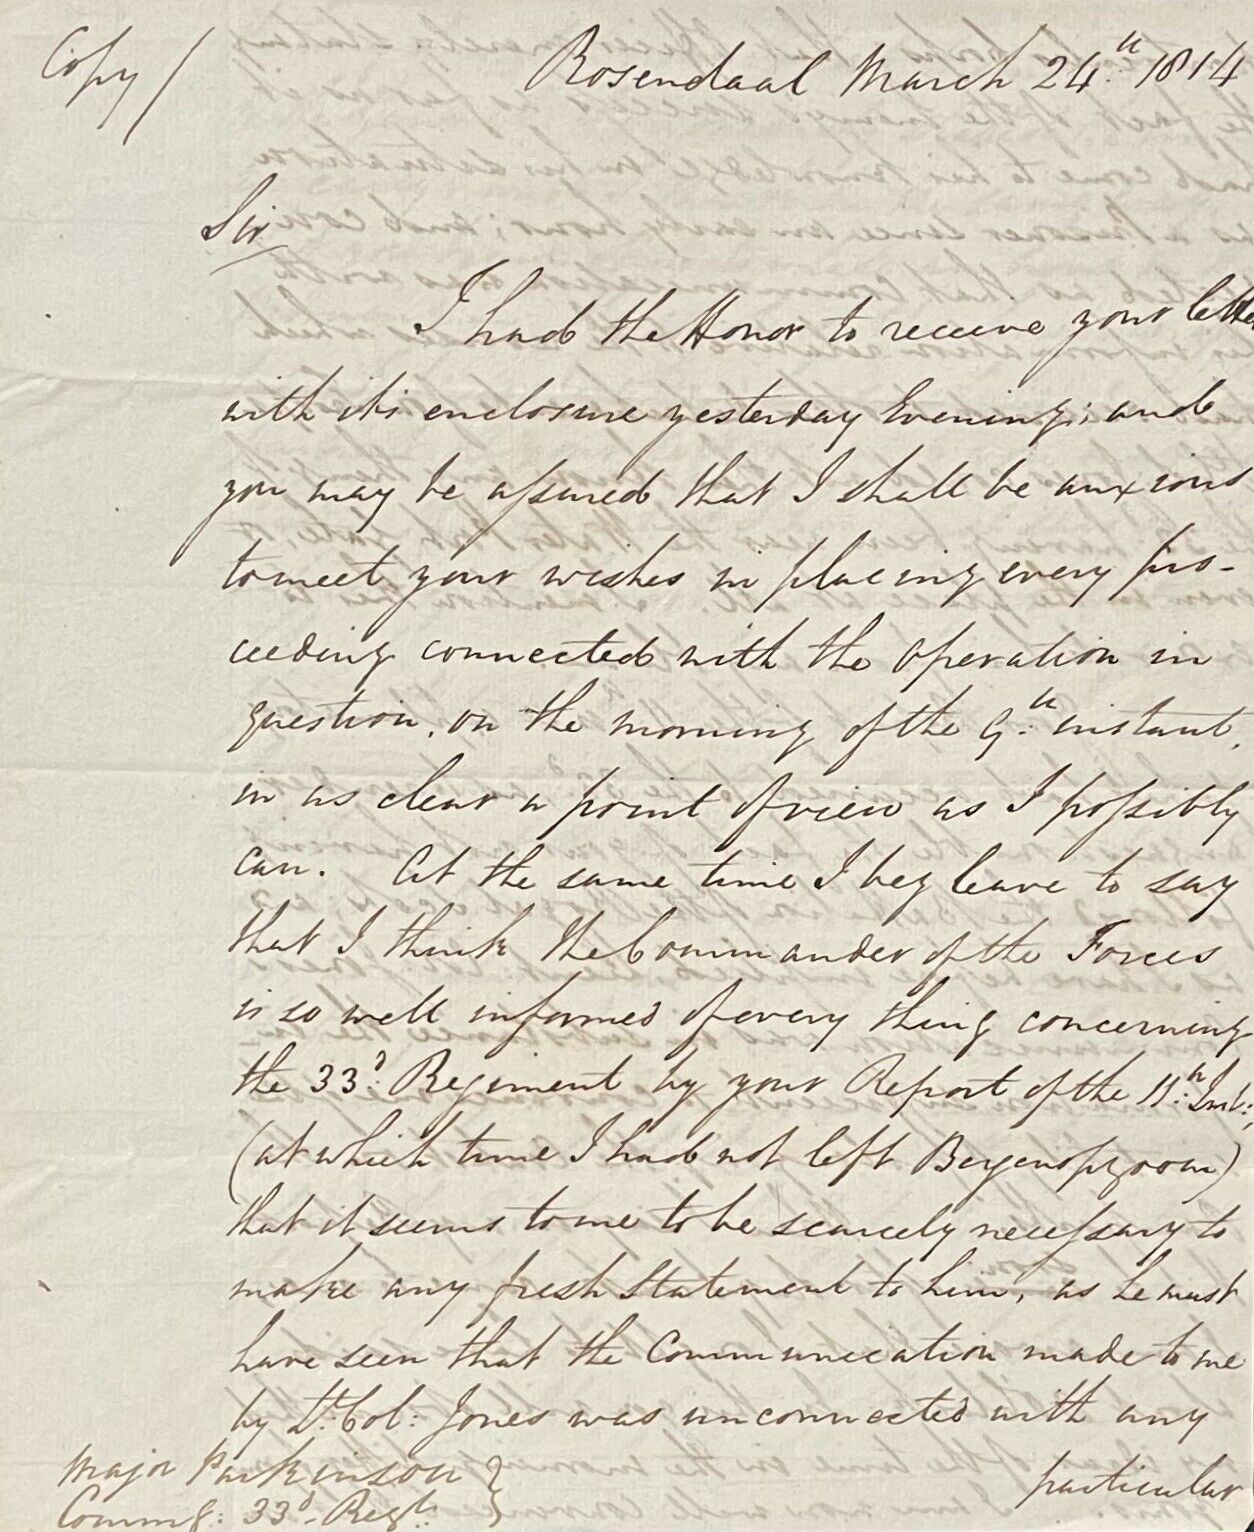 Copy/
Rosendaal March 24.th 1814
Sir
I had the Honor to receive your letter
with its enclosure yesterday Evening; and
you may be assured that I shall be anxious
to meet your wishes in placing every pro-
ceeding connected with the Operation in
question, on the morning of the 9.th instant,
in as clear a point of view as I possibly
can. At the same time I beg leave to say
that I think the Commander of the Forces
is so well informed of every thing concerning
the 33.d Regiment by your Report of the 11.th Inst:,
(at which time I had not left Bergenopzoom)
that it seems to me to be scarcely necessary to
make any fresh Statement to him, as he must
have seen that the Communication made to me
by Lt. Col: Jones was unconnected with any
particular
Major Parkinson }
Commg: 33d. Regt. }